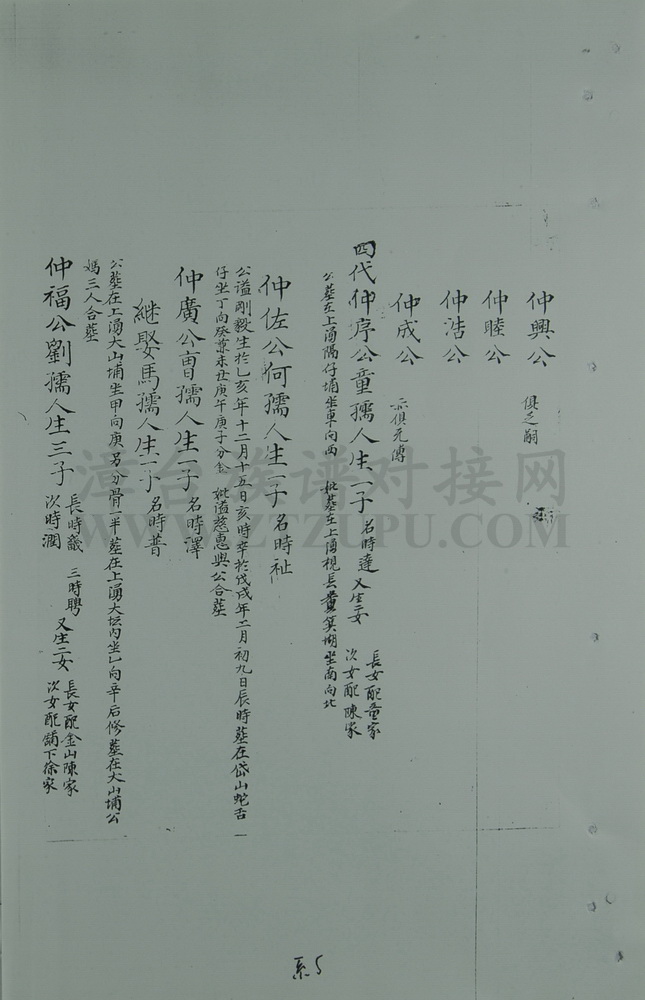 仲興公 俱乏嗣
仲睦公
仲浩公
仲成公 亦俱先傳
四代仲序公童孺人生一子 名時達 又生二女 長女配童家 次女配陳家
公墓在上湧隔仔埔坐東向西 妣墓在上湧 坐南向北
仲佐公何孺人生一子 名時祉
公谥剛毅生於乙亥年十二月十五日亥時卒於戊戌年二月初九日辰時墓在岱山蛇舌一
仔坐丁向癸兼未丑庚午庚子分金 妣谥慈惠與公合墓
仲廣公曾孺人生一子 名時澤
継娶馬孺人生一小 名時普
公墓在上湧大山埔坐甲向庚另分骨一半墓在上湧大坛内坐乙向辛后修墓在大山埔公
媽三人合墓
仲福公劉孺人生三子 長時歲 次時潤 三時聘 又生二女 長女配金山陳家 次女配舖下徐家
系5
漳台族谱对接网
WWW.ZTZUPU.COM